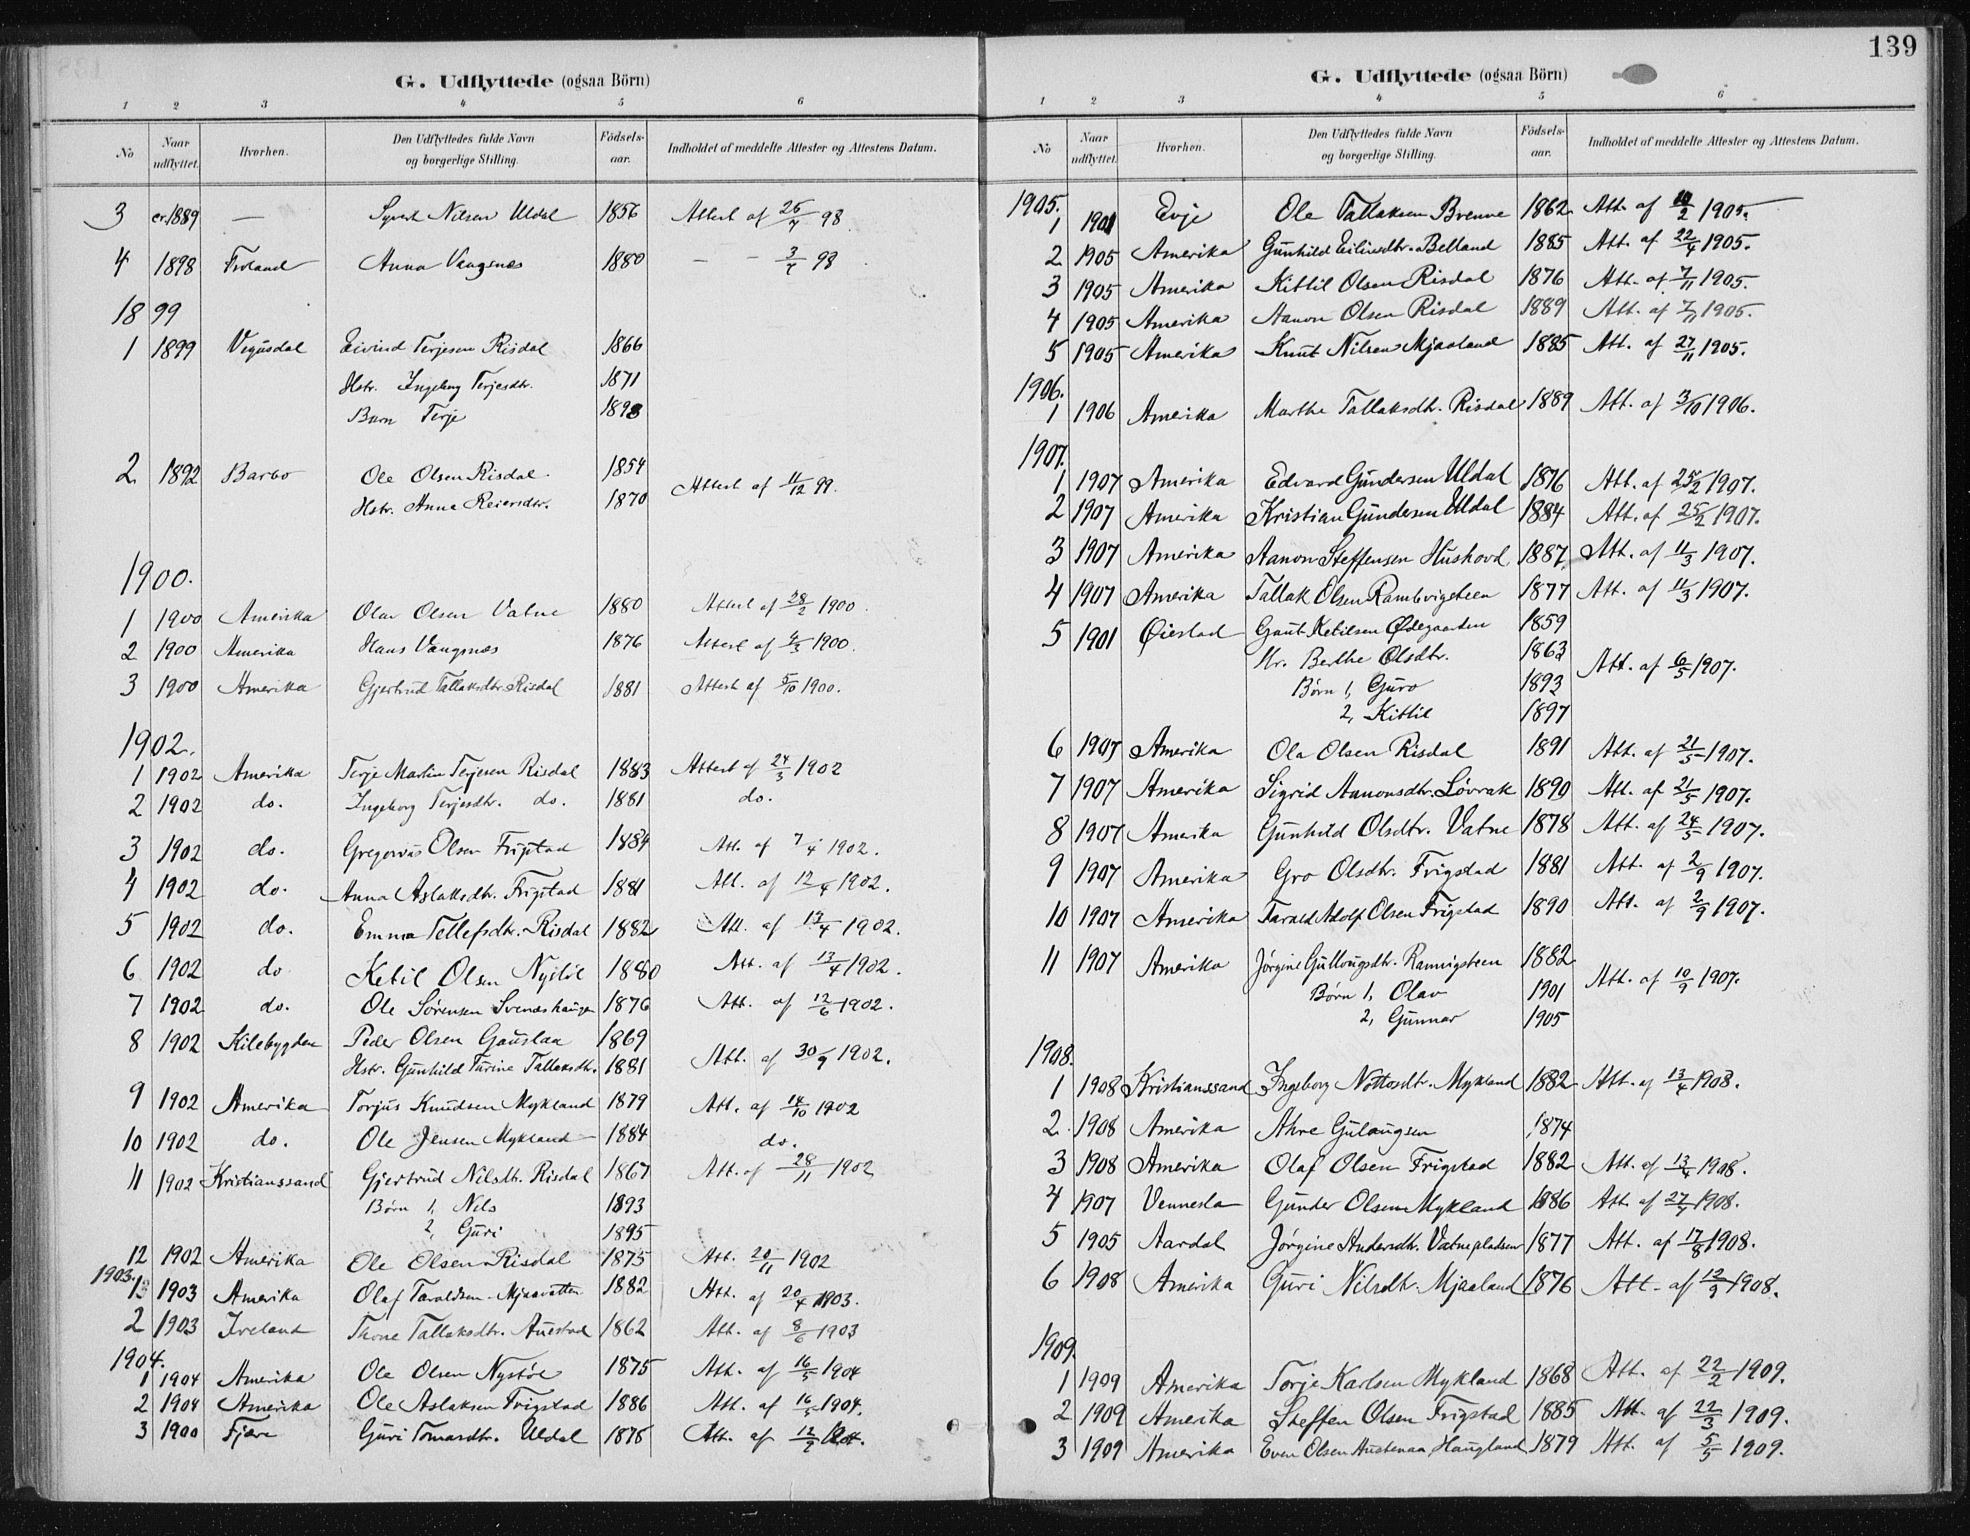 G. Udflyttede (ogsaa Börn)
1 2 3 4 5 6
No Naar udflyttet. Hvorhen. Den Udflyttedes fulde Navn og borgerlige Stilling. Födsels-aar. Indholdet af meddelte Attester og Attestens Datum.
3 cr. 1889 — Syvert Nilsen Uldal 1856 Attest af 25/7 98.
4 1898 Froland Anna Vangsnes 1880 — — 3/7 98
1899
1 1899 Vegusdal Eivind Terjesen Risdal 1866
Hstr. Ingeborg Terjesdtr. 1871
Barn Terje 1898
2 1892 Barbo Ole Olsen Risdal 1854
Hstr. Anna Reiersdtr. 1870 Attest af 11/12 99.
1900.
1 1900 Amerika Olav Olsen Vatne 1880 Attest af 28/2 1900.
2 1900 Amerika Hans Vangsnes 1876 Attest af 4/3 1900.
3 1900 Amerika Gjertrud Tallaksdtr. Risdal 1881 Attest af 5/10 1900.
1902.
1 1902 Amerika Terje Martin Terjesen Risdal 1883 Attest af 24/3 1902
2 1902 do. Ingeborg Terjesdtr. do. 1881 do.
3 1902 do. Gregorius Olsen Frigstad 1884 Att. af 7/4 1902.
4 1902 do. Anna Aslaksdtr. Frigstad 1881 Att. af 12/4 1902.
5 1902 do. Emma Tellefsdtr. Risdal 1882 Att. af 13/4 1902.
6 1902 do Ketil Olsen Nystöl 1880 Att. af 13/4 1902.
7 1902 do. Ole Sörensen Svenæshaugen 1876 Att. af 12/6 1902.
8 1902 Kilebygden Peder Olsen Gauslaa 1869
Hstr. Gunhild Turine Tallaksdtr. 1881 Att. af 30/9 1902.
9 1902 Amerika Torjus Knudsen Mykland 1879 Att. af 14/10 1902
10 1902 do. Ole Jensen Mykland 1884 do.
11 1902 Kristianssand Gjertrud Nilsdtr. Risdal 1867 Att. af 28/11 1902
Börn 1, Nils 1893
2, Guri 1895
12 1902 Amerika Ole Olsen Risdal 1875 Att. 20/11 1902
1903.
1 1903 Amerika Olaf Taraldsen Mjaavatten 1882 Att. af 20/4 1903.
2 1903 Iveland Thone Tallaksdtr. Auestad 1862 Att. af 8/6 1903
1904.
1 1904 Amerika Ole Olsen Nystöl 1875 Att. af 16/5 1904
2 1904 Amerika Ole Aslaksen Frigstad 1886 Att. af 16/5 1904.
3 1900 Fjære Guri Tomasdtr. Uldal 1878 Att. af 12/9
139
G. Udflyttede (ogsaa Börn)
1 2 3 4 5 6
No Naar udflyttet. Hvorhen. Den Udflyttedes fulde Navn og borgerlige Stilling. Födsels-aar. Indholdet af meddelte Attester og Attestens Datum.
1905.
1 1901 Evje Ole Tallaksen Brenne 1862 Att. af 10/2 1905.
2 1905 Amerika Gunhild Eilevsdtr. Belland 1885 Att. af 22/4 1905.
3 1905 Amerika Kittil Olsen Risdal 1876 Att. af 7/11 1905.
4 1905 Amerika Aanon Olsen Risdal 1889 Att. af 7/11 1905.
5 1905 Amerika Knut Nilsen Mjaaland 1885 Att. af 27/11 1905.
1906.
1 1906 Amerika Marthe Tallaksdtr. Risdal 1889 Att. af 3/10 1906.
1907.
1 1907 Amerika Edvard Gundersen Uldal 1876 Att. af 25/2 1907.
2 1907 Amerika Kristian Gundersen Uldal 1884 Att. af 25/2 1907.
3 1907 Amerika Aanon Steffensen Hushovd 1887 Att. af 11/3 1907.
4 1907 Amerika Tallak Olsen Rambvigsteen 1877 Att. af 11/3 1907.
5 1901 Öiestad Gaut Ketilsen Ødegaarden 1859
Hr. Berthe Olsdtr. 1863 Att. af 6/5 1907.
Börn 1, Guro 1893
2, Kittil 1897
6 1907 Amerika Ola Olsen Risdal 1891 Att. af 21/5 1907.
7 1907 Amerika Sigrid Aanonsdtr. Lövrak 1890 Att. af 21/5 1907.
8 1907 Amerika Gunhild Olsdtr. Vatne 1878 Att. af 24/5 1907.
9 1907 Amerika Gro Olsdtr. Frigstad 1881 Att. af 2/9 1907.
10 1907 Amerika Tarald Adolf Olsen Frigstad 1890 Att. af 2/9 1907.
11 1907 Amerika Jörgine Gullougsdtr. Ramvigsteen 1882
Börn 1, Olav 1901 Att. af 10/9 1907.
2, Gunnar 1905
1908.
1 1908 Kristianssand Ingeborg Nottosdtr. Mykland 1882 Att. af 13/4 1908.
2. 1908 Amerika Akre Gulaugsen 1874
3 1908 Amerika Olaf Olsen Frigstad 1882 Att. af 13/4 1908.
4 1907 Vennesla Gunder Olsen Mykland 1886 Att. af 27/7 1908.
5 1905 Aardal Jörgine Andersdtr. Vatnepladsen 1877 Att. af 17/8 1908.
6 1908 Amerika Guri Nilsdtr. Mjaaland 1876 Att. af 12/9 1908.
1909.
1 1909 Amerika Torje Karlsen Mykland 1868 Att. af 22/2 1909.
2 1909 Amerika Steffen Olsen Frigstad 1885 Att. af 22/3 1909.
3 1909 Amerika Even Olsen Haugland 1879 Att. af 5/5 1909.